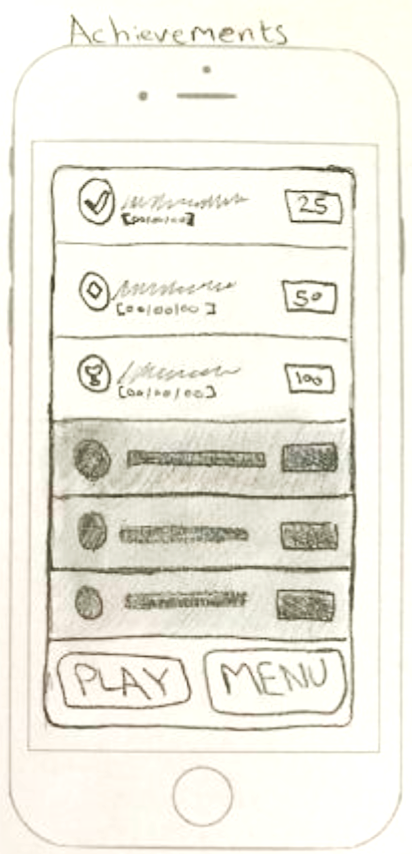 Achievements
25
[00/00/00]
50
[00/00/00]
100
[00/00/00]
PLAY MENU